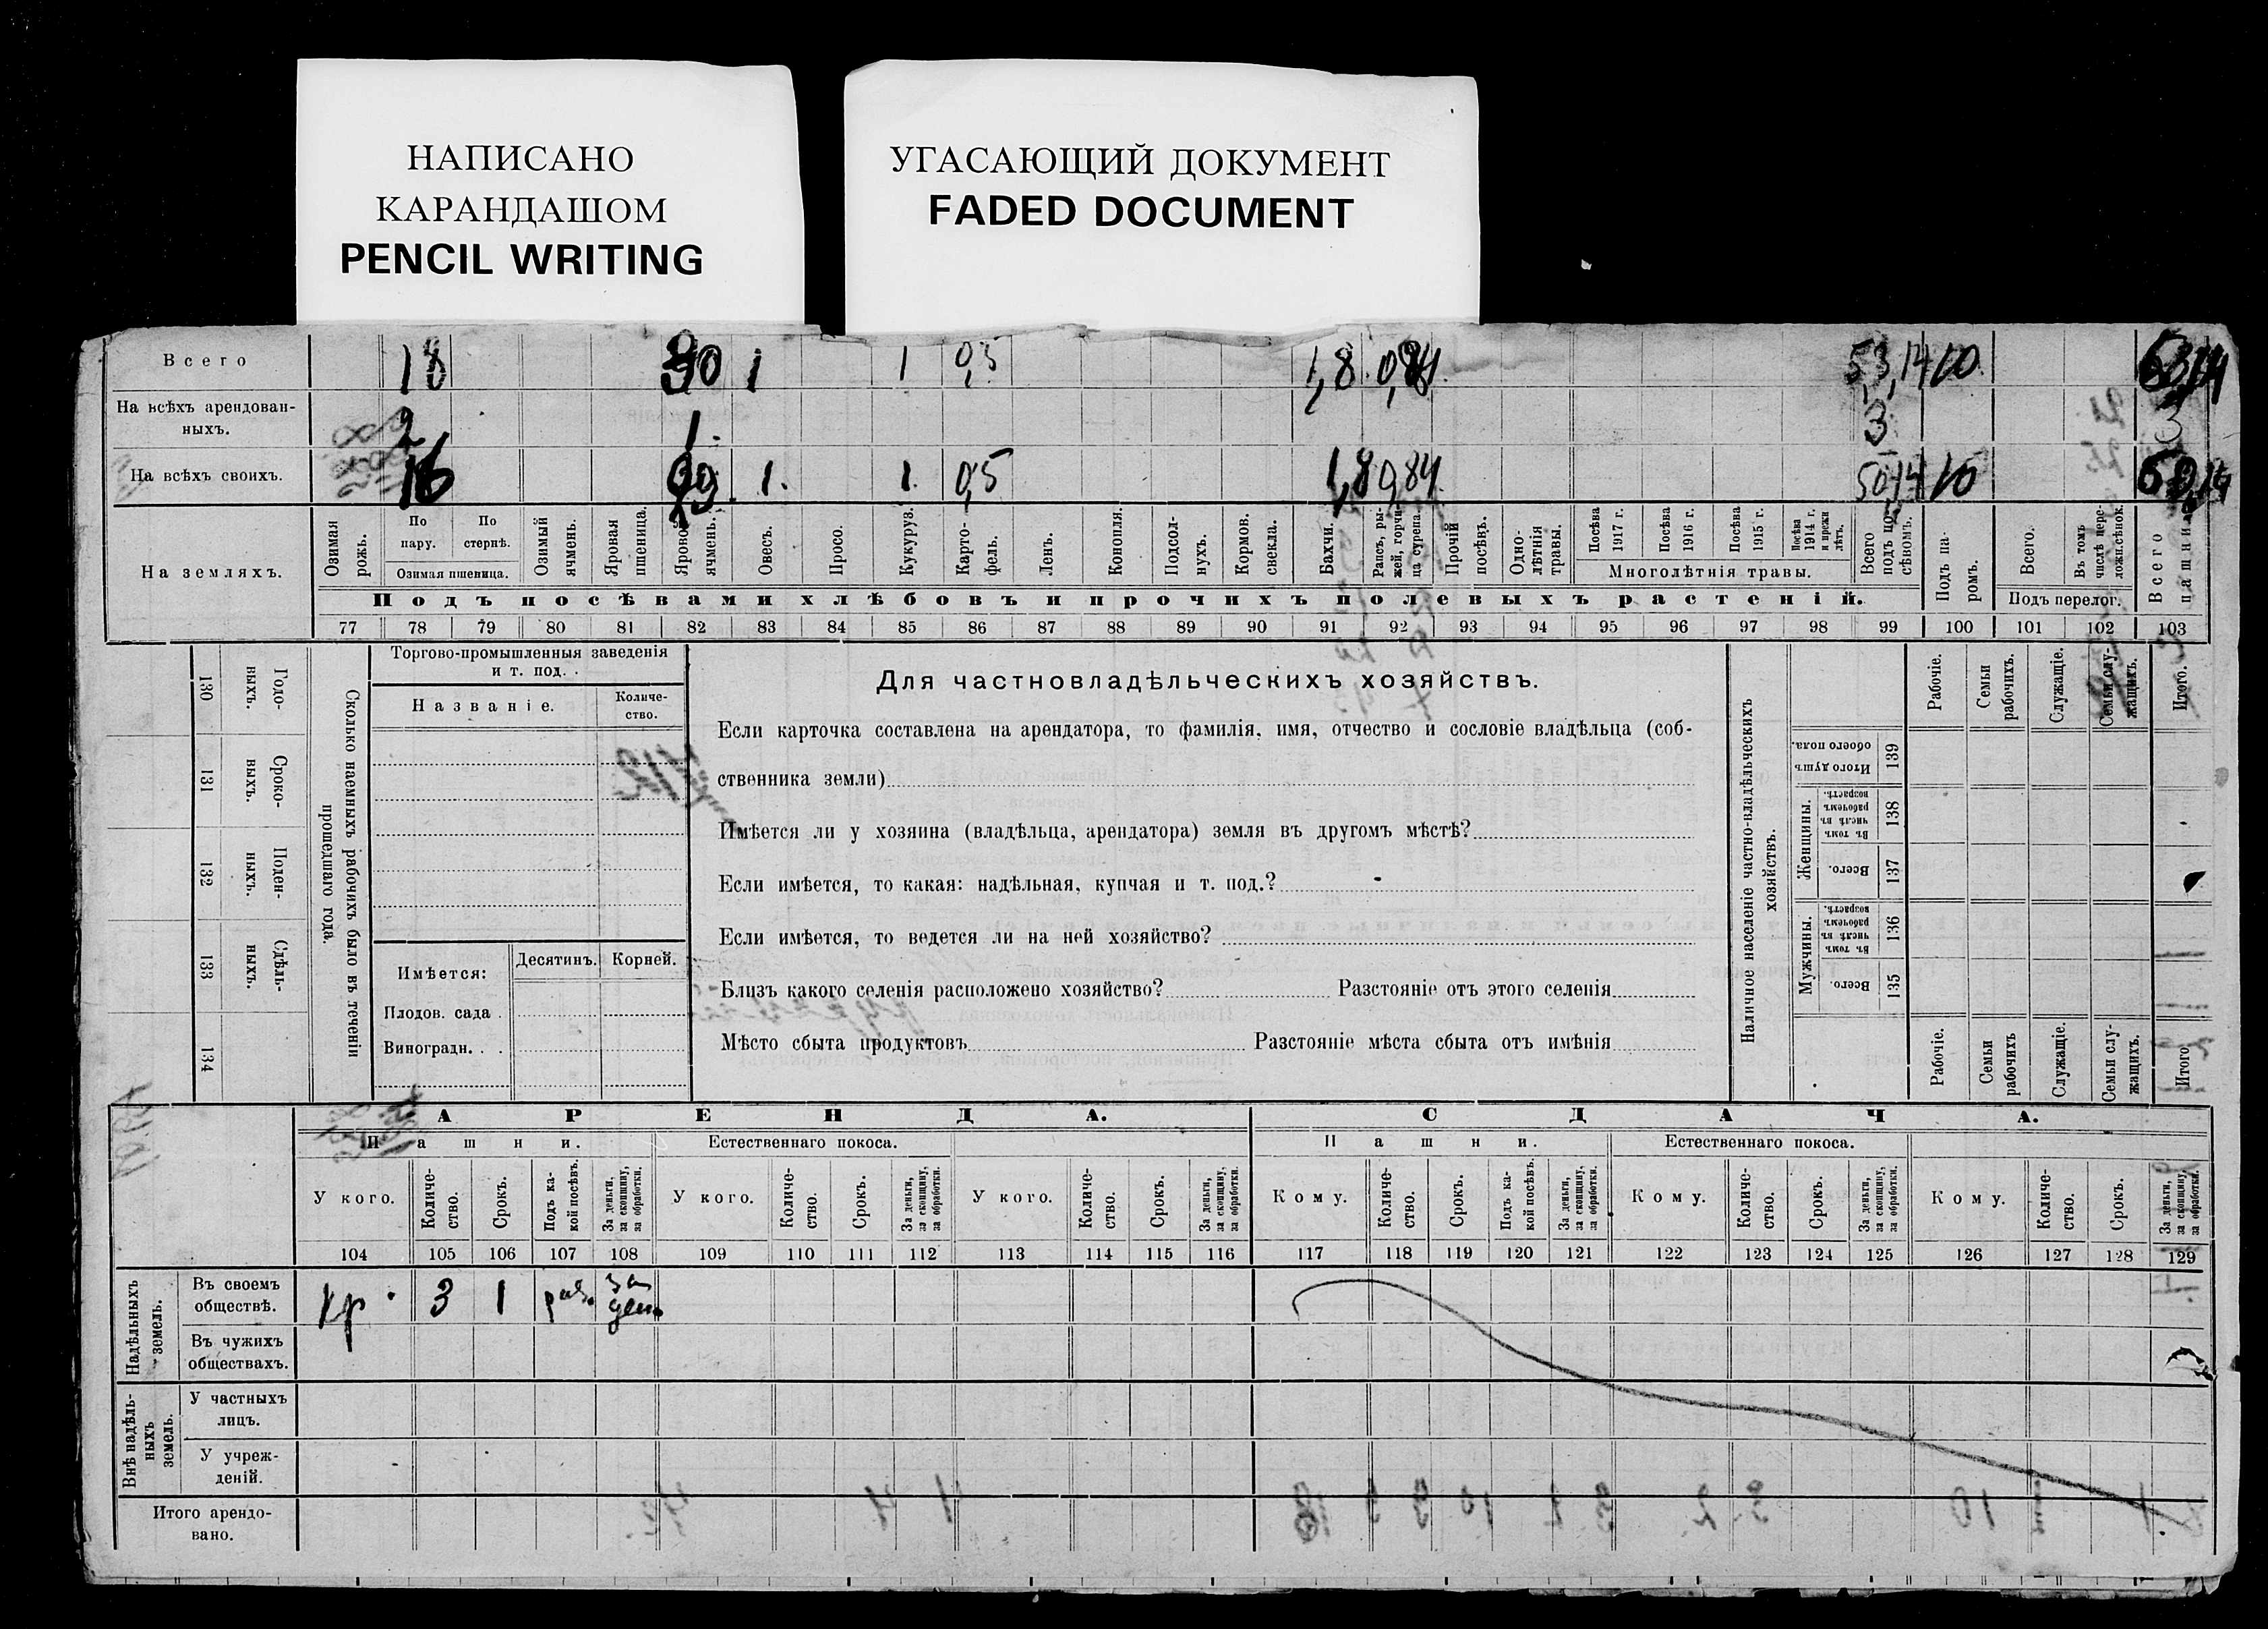 НАПИСАНО
КАРАНДАШОМ
PENCIL WRITING
УГАСАЮЩИЙ ДОКУМЕНТ
FADED DOCUMENT
Всего 18 30 1 1 0,5 1,8 0,84 53,14 10 63,14
На всѣхъ арендован-
ныхъ. 2 1 3 3
На всѣхъ своихъ. 16 29 1 1 0,5 1,8 0,84 50,14 10 60,14
На земляхъ.
Озимая рожь.
По пару.
По стернѣ.
Озимая пшеница.
Озимый ячмень.
Яровая пшеница.
Яровой ячмень.
Овесъ.
Просо.
Кукуруз.
Карто-
фель.
Ленъ.
Конопля.
Подсол-
нухъ.
Кормов. свекла.
Бахчи.
Рапсъ, ры-
жей, горчи-
ца сурепа.
Прочій посѣвъ.
Одно-
лѣтнія травы.
Посѣва 1917 г.
Посѣва 1916 г.
Посѣва 1915 г.
Посѣва 1914 г. и прежн лѣтъ.
Многолѣтнія травы.
Всего подъ по-
сѣвомъ.
Подъ па-
ромъ.
Всего.
Въ томъ числѣ перс-
ложн.сѣнок.
Подъ перелог.
Всего пашни
Подъ посѣвами хлѣбовъ и прочихъ полевыхъ растеній.
77 78 79 80 81 82 83 84 85 86 87 88 89 90 91 92 93 94 95 96 97 98 99 100 101 102 103
Сколько наемныхъ рабочихъ было въ теченіи
прошедшаго года.
Годо-
ныхъ.
130
Сроко-
ныхъ.
131
Поден-
ныхъ.
132
Сдѣль-
ныхъ.
133
134
Торгово-промышленныя заведенія
и т. под.
Названіе.
Количе-
ство.
Имѣется:
Десятинъ. Корней.
Плодов. сада
Виноградн.
Для частновладѣльческихъ хозяйствъ.
Если карточка составлена на арендатора, то фамилія, имя, отчество и сословіе владѣльца (соб-
ственника земли)
Имѣется ли у хозяина (владѣльца, арендатора) земля въ другомъ мѣстѣ?
Если имѣется, то какая: надѣльная, купчая и т. под.?
Если имѣется, то ведется ли на ней хозяйство?
Близъ какого селенія расположено хозяйство? Разстояніе отъ этого селенія
Мѣсто сбыта продуктовъ Разстояніе мѣста сбыта отъ имѣнія
Наличное населеніе частно-владѣльческихъ
хозяйствъ.
Рабочіе.
Семьи рабочихъ.
Служащіе.
Семьи слу-
жащихъ.
Итого.
Итого душъ обоего пола.
139
Женщины.
Въ томъ числѣ въ рабочемъ возрастѣ.
138
Всего.
137
Мужчины.
Въ томъ числѣ въ рабочемъ возрастѣ.
136
Всего.
135
Рабочіе.
Семьи рабочихъ
Служащіе.
Семьи слу-
жащихъ.
Итого
АРЕНДА. СДАЧА.
Пашни. Естественнаго покоса. Пашни. Естественнаго покоса.
У кого.
Количе-
ство.
Срокъ.
Подъ ка-
кой посѣвъ.
За деньги,
за скопщину,
за обработки.
У кого.
Количе-
ство.
Срокъ.
За деньги,
за скопщину,
за обработки.
У кого.
Количе-
ство.
Срокъ.
За деньги,
за скопщину,
за обработки.
Кому.
Количе-
ство.
Срокъ.
Подъ ка-
кой посѣвъ.
За деньги,
за скопщину,
за обработки.
Кому.
Количе-
ство.
Срокъ.
За деньги,
за скопщину,
за обработки.
Кому.
Количе-
ство.
Срокъ.
За деньги,
за скопщину,
за обработки.
104 105 106 107 108 109 110 111 112 113 114 115 116 117 118 119 120 121 122 123 124 125 126 127 128 129
Надѣльныхъ
земель.
Въ своемъ
обществѣ. кр. 3 1 за
Въ чужихъ
обществахъ.
Внѣ надѣль-
ныхъ
земель.
У частныхъ
лицъ.
У учреж-
деній.
Итого арендо-
вано.